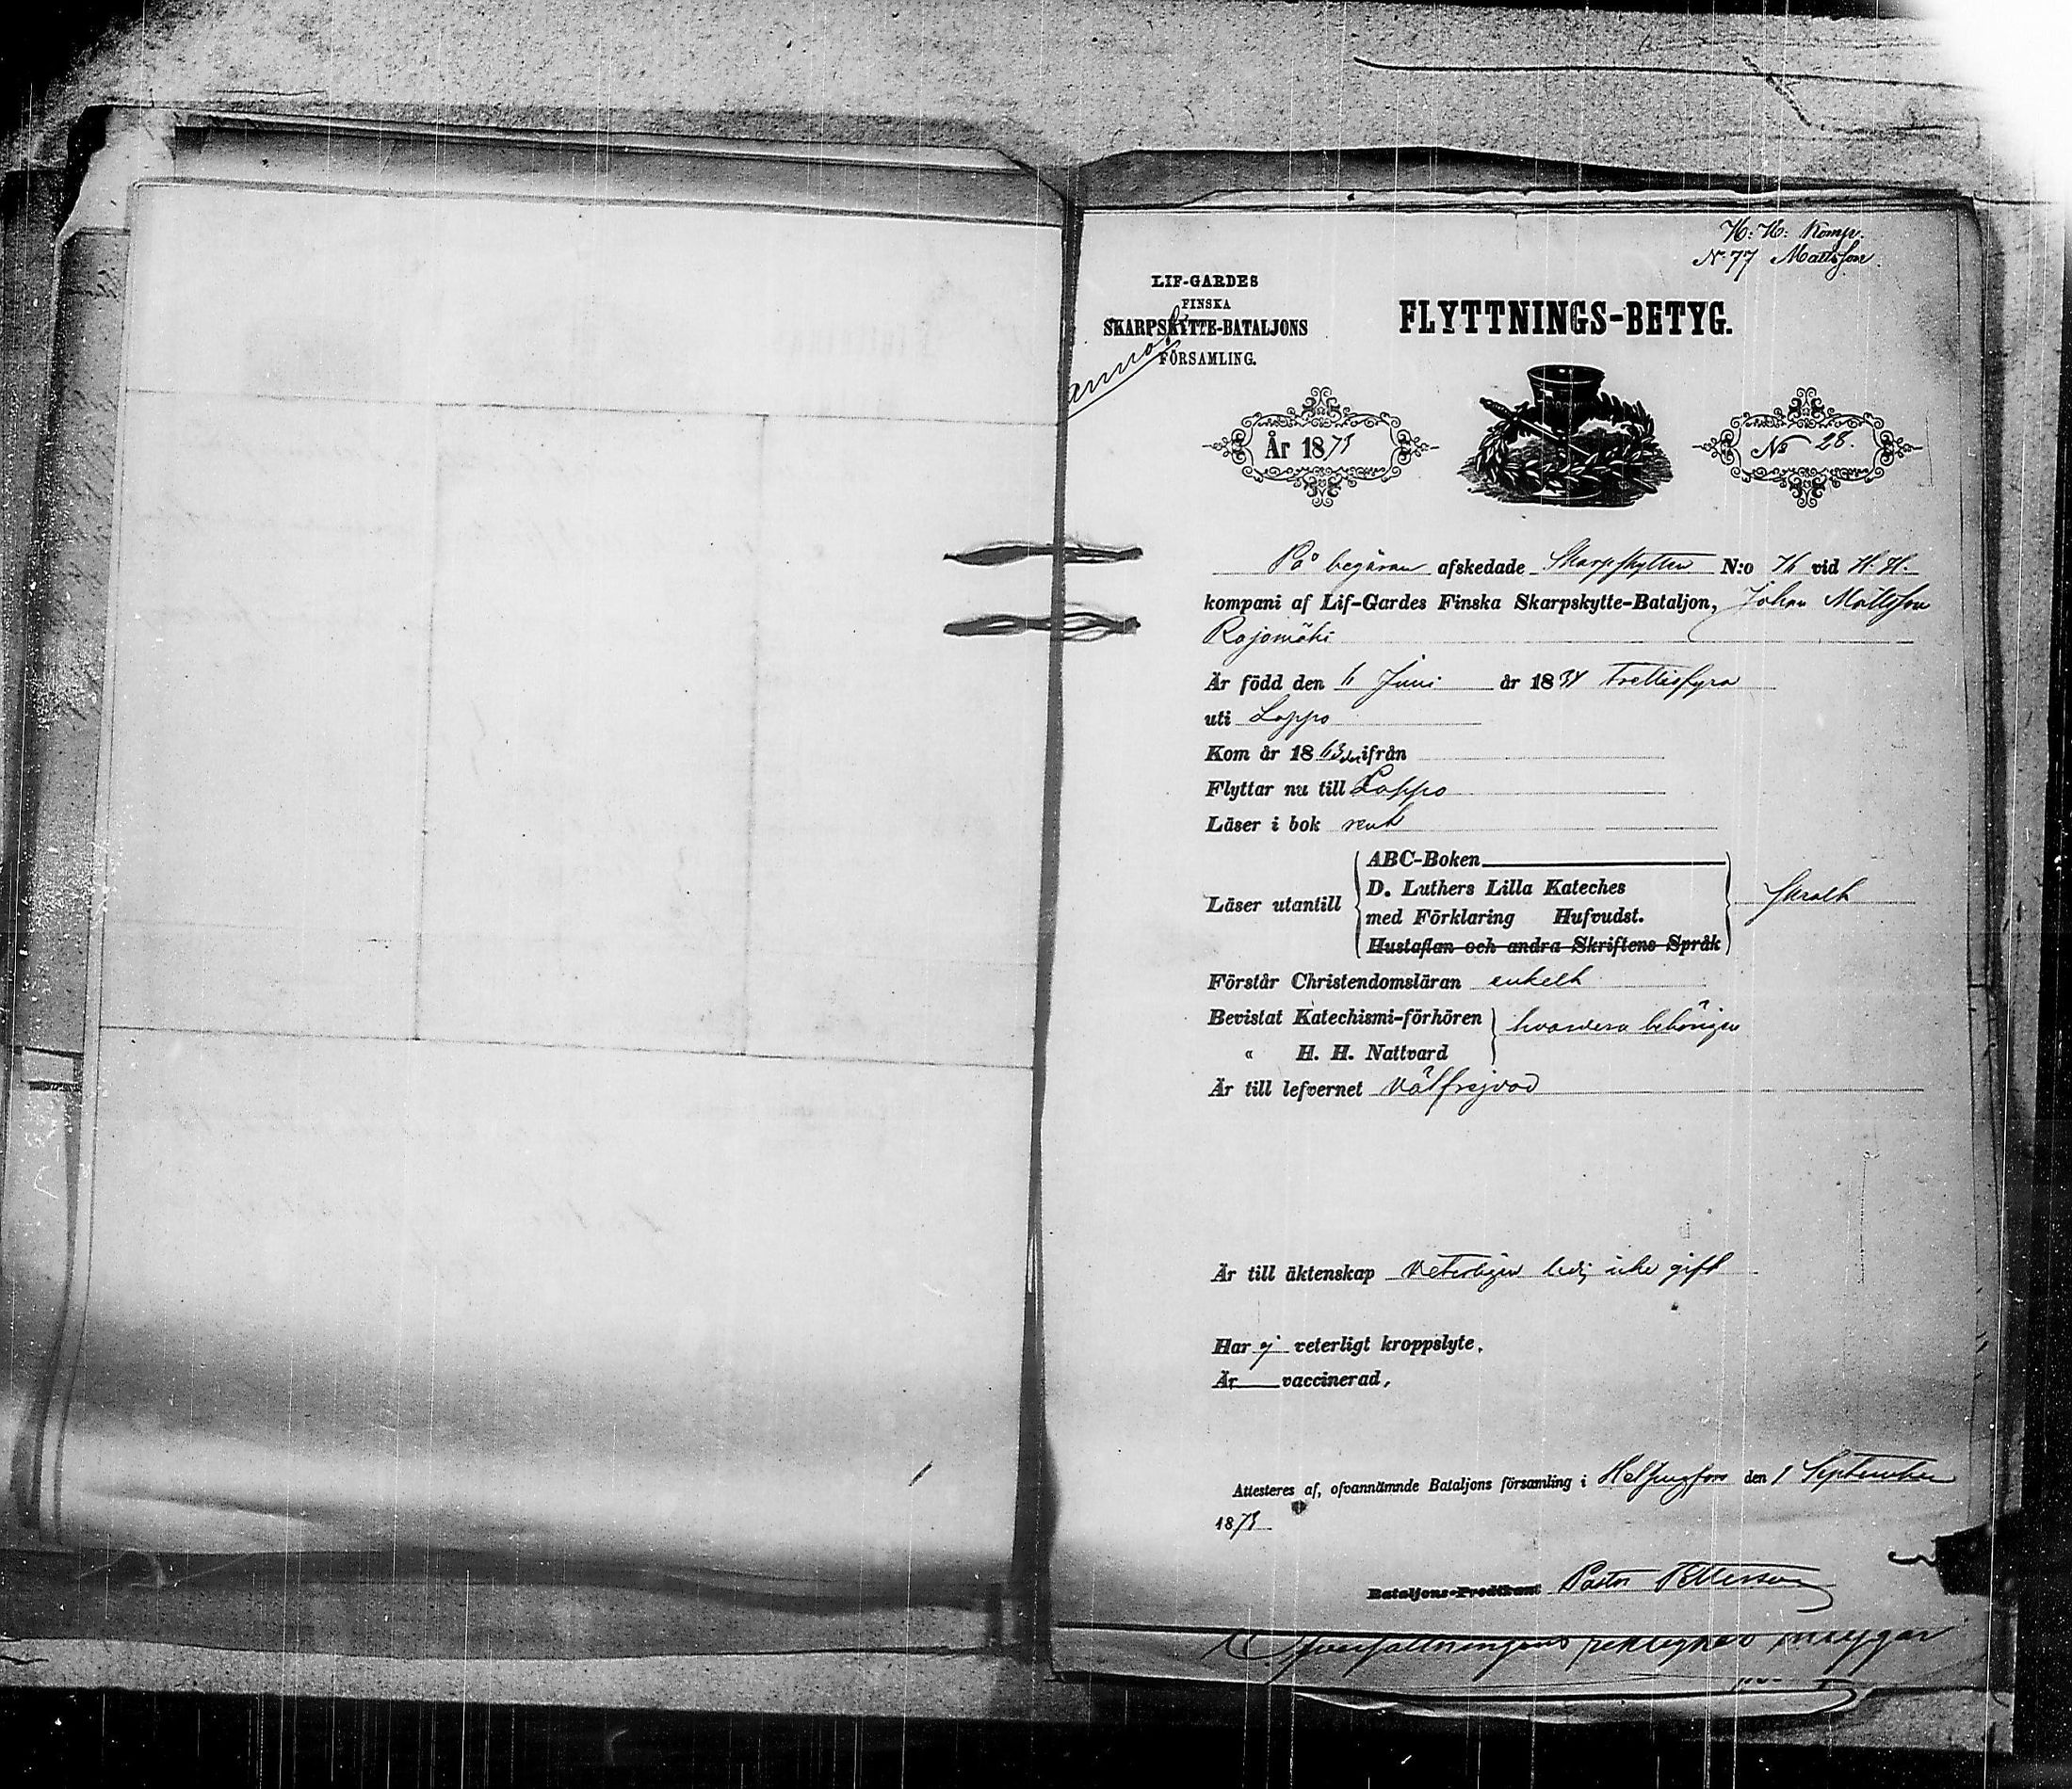 H: H: Komp.
N 77 Mattsson
LIF-GARDES
FINSKA
SKARPSKYTTE-BATALJONS
FÖRSAMLING.
FLYTTNINGS-BETYG.
År 1873
No 28.
På begäran afskedade Skarpskytten N:o vid H. H.
kompani af Lif-Gardes Finska Skarpskytte-Bataljon, Johan Mattsson
Rajamäki
Är född den 6 Juni år 1834 trettifyra
uti Loppo
Kom år 1863 ifrån
Flyttar nu till Loppo
Läser i bok rent
ABC-Boken
Läser utantill
D. Luthers Lilla Kateches
med Förklaring Hufvudst.
Hustaflan och andra Skriftens Språk
Förstår Christendomsläran enkelt
Bevistat Katechismi-förhören
hvardera behörigen
" H. H. Nattvard
Är till lefvernet välfrejdad
Är till äktenskap veterligen ledig icke gift
Har ej veterligt kroppslyte,
Är vaccinerad,
Attesteras af, ofvannämnde Bataljons församling i Helsingfors den 1 September
1873
Bataljons-Predikant Pastor Pettersson